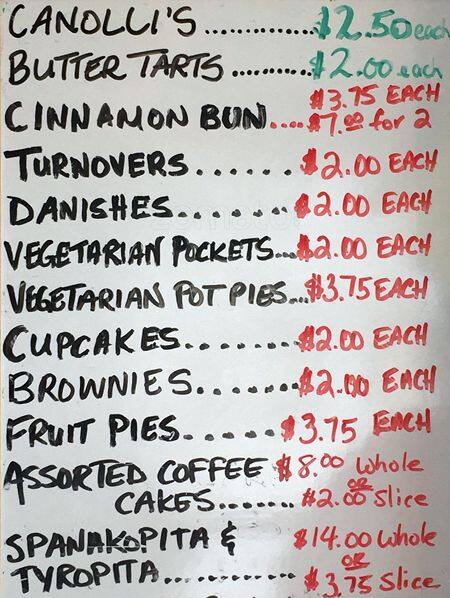 CANOLLI'S ........... $2.50 each
BUTTER TARTS ......... $2.00 each
$3.75 EACH
CINNAMON BUN.... $7.00 for 2
TURNOVERS...... $2.00 EACH
DANISHES...... $2.00 EACH
VEGETARIAN POCKETS... $2.00 EACH
VEGETARIAN POT PIES... $3.75 EACH
CUPCAKES...... $2.00 EACH
BROWNIES...... $2.00 EACH
FRUIT PIES...... $3.75 EACH
ASSORTED COFFEE $8.00 whole
OR
CAKES....... $2.00 Slice
SPANAKOPITA & $14.00 whole
OR
TYROPITA............ $3.75 Slice